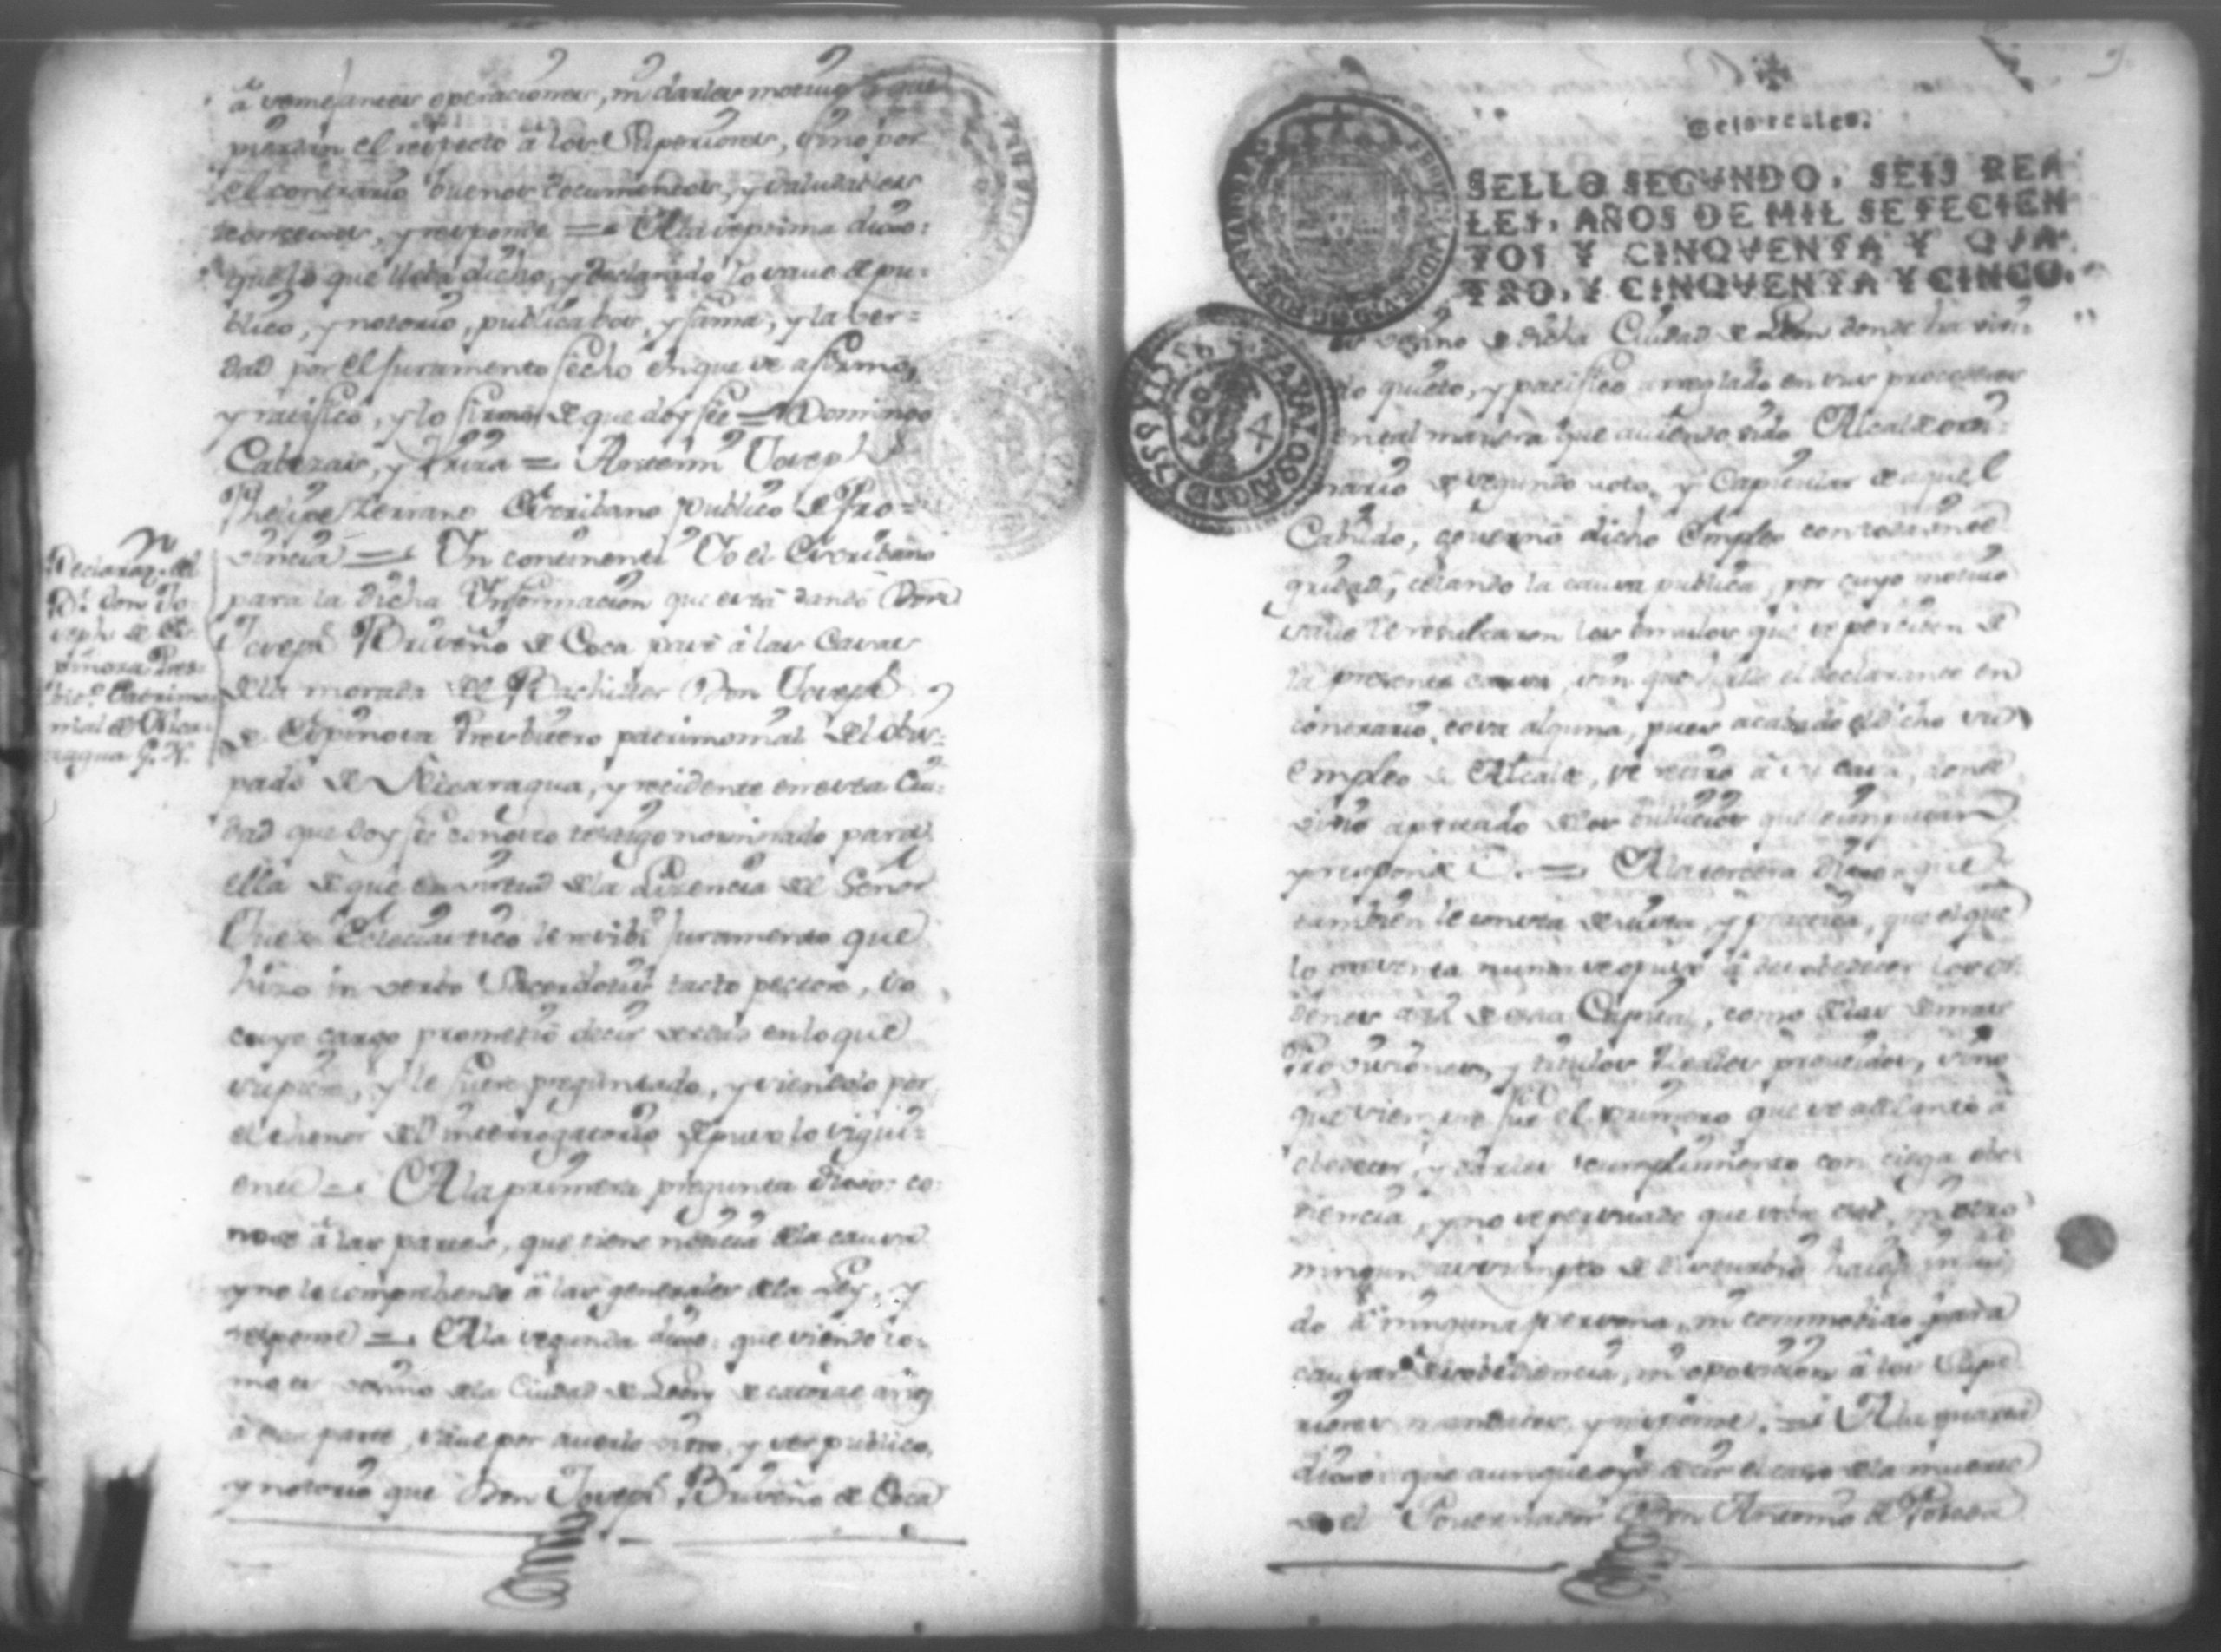 â semejantes operaciones, ni darles motivo â que
pierdan el respecto â los Superiores, sino por
el contrario buenos documentos, y saludables
consejos, y responde = A la septima dixo:
que lo que lleba dicho, y declarado lo save de pu-
blico, y notorio, publica bos, y fama, y la ver=
dad por el juramento fecho en que se afirmó,
y ratificó, y lo firmó de que doy feé = Domingo
Cabezas, y Uriza = Antemi Joseph
Phelipe Zerrano Escribano publico de Pro=
vincia = In continenti Yo el Escribano
para la dicha Informacion que está dando Don
Joseph Briseño de Coca pasé â las casas
de la morada de el Bachiller Don Joseph
de Espinosa Presbitero patrimonial de el obis-
pado de Nicaragua, y recidente en esta Ciu-
dad que doy feé conosco testigo nominado para
ella de que en virtud de la Lizencia de el Señor
Juez Eclesiastico le resibi juramento que
hizo in verbo Sacerdotis tacto pectore, so
cuyo cargo prometió decir verdad en lo que
supiere, y le fuere preguntado, y siendolo por
el thenor de el interrogatorio depuso lo sigui-
ente = A la primera pregunta dixo: co-
nose â las partes, que tiene noticia de la causa
y no le comprehende â las generales de la Ley, y
responde = A la segunda dixo: que siendo co-
mo es vesino de la Ciudad de Leon de catorze años
â esta parte, save por averlo visto, y ser publico,
y notorio que Don Joseph Briseño de Coca
Declaraz. del
Br. don Jo-
seph de Es-
pinosa Pres-
bit.º Patrimo-
nial de Nica-
ragua
Seis reales.
SELLO SEGVNDO, SEIS REA
LES, AÑOS DE MIL SETECIEN
TOS Y CINQVENTA Y QVA
TRO, Y CINQVENTA Y CINCO.
es vesino de dicha Ciudad de Leon donde ha vivi-
do quieto, y pacifico arreglado en sus procederes
en tal manera que aviendo sido Alcalde ordi-
nario de segundo voto, y Capitular de aquel
Cabildo, governó dicho Empleo con toda inte-
gridad, celando la causa publica, por cuyo motivo
save le resultaron los emulos que se perciben de
la presente causa, sin que halle el declarante en
contrario cosa alguna, pues acabado el dicho su
empleo de Alcalde, se retiró â su casa, donde
vivió apartado de los bullicios que le imputan
y responde = A la tercera dixo: que
tambien le consta de vista, y practica, que el que
lo presenta nunca se opuso â desobedecer los or-
denes assi de esta Capital, como de las demas
Provisiones, y titulos Reales proveidos, sino
que siempre fue el primero que se adelantó â
obedecer, y darles cumplimiento con ciega obe-
diencia, y no se persuade que sobre este, ni otro
ningun assumpto de disturbio haia
do â ninguna persona, ni commobido para
causar desobediencia, ni oposicion â los Supe-
riores mandatos, y responde. = A la quarta
dixo: que aunque oyó decir el caso de la muerte
de el Governador Don Antonio de Poveda